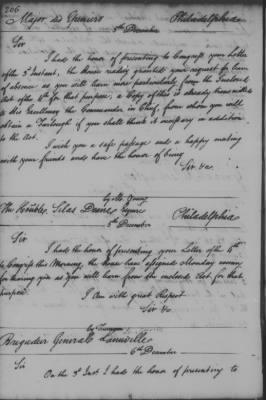 206
Major des Epiniers Philadelphia
5th December
Sir
I had the honor of presenting to Congress your Letter
of the 5 Instant, the House readily granted your request for leave
of absence as you will learn more particularly from the Inclosed
Act of the 6th for that purpose, a Copy of this is already transmitted
to His Excellency the Commander in Chief, from whom you will
obtain a Furlough if you shall think it necessary in addition
to the Act.
I wish you a safe passage and a happy meeting
with your friends and have the honor of being
Sir &ca
The Honble. Silas Deane Esquire Philadelphia
8th December
Sir
I had the honor of presenting your Letter of the 6th
to Congress this Morning, the House have assigned Monday
for hearing you as you will learn from the inclosed Act for that
purpose.
I Am with great Respect
Sir &c
Brigadier General
6th December
Sir
On the 3d Inst. I had the honor of presenting to